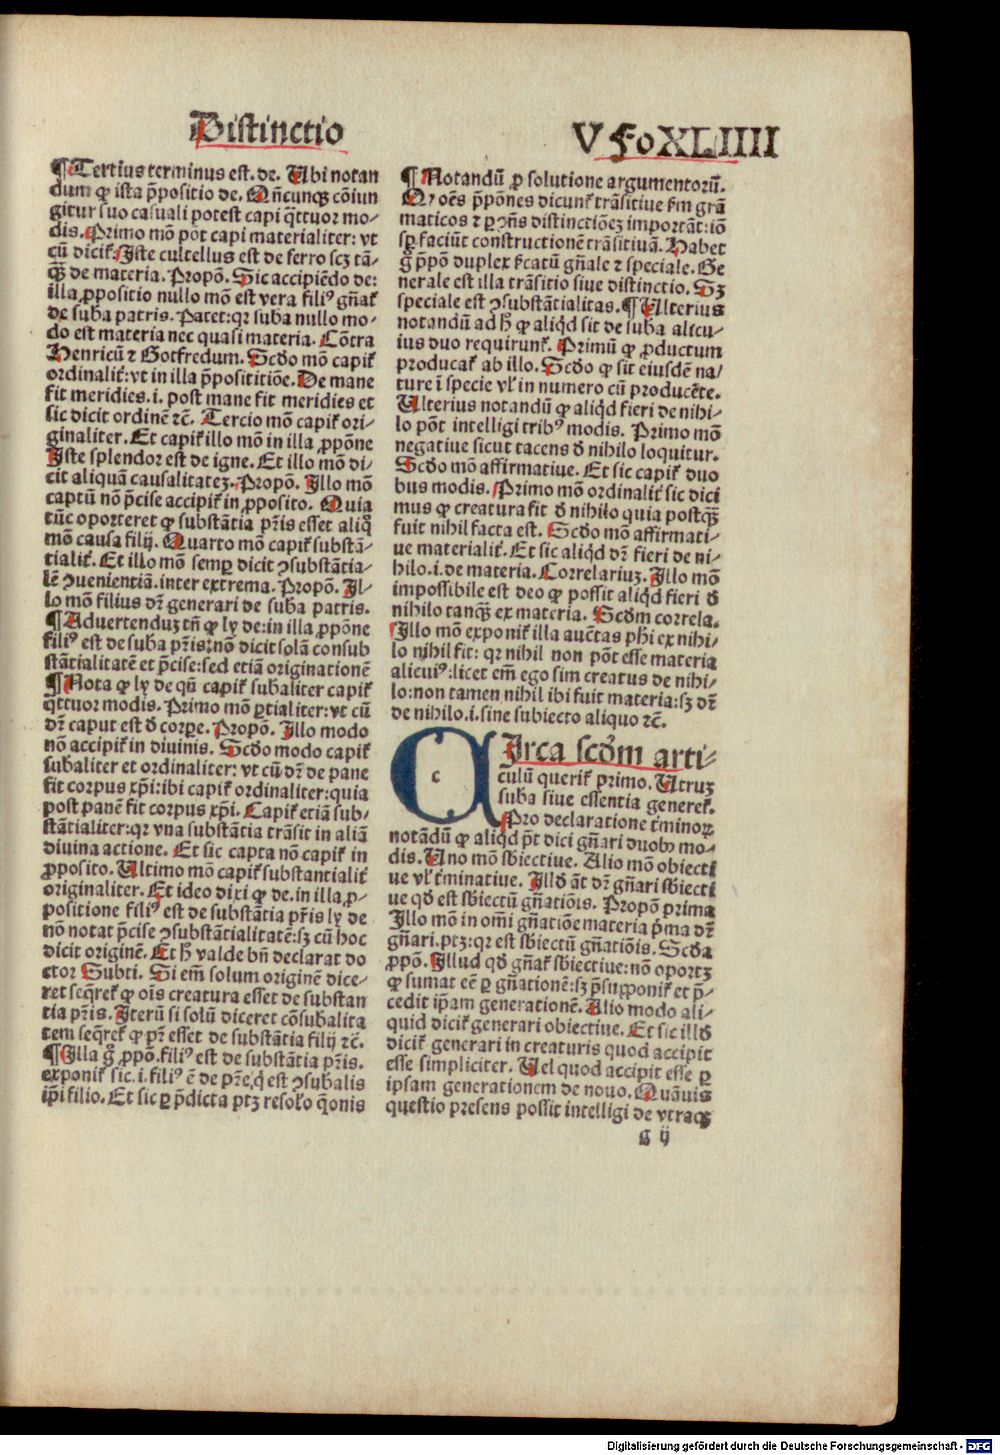 Distinctio
V Fo XLIIII
¶ Tertius terminus est. de. Ubi notan
dum ꝙ ista p̄positio de. Qn̄cunqꝫ cōiun
gitur suo casuali potest capi q̄ttuor mo⸗
dis. Primo mō pōt capi materialiter: vt
cū dicit᷑. Iste cultellus est de ferro scꝫ tā⸗
qꝫ̄ de materia. Propō. Sic accipiēdo de:
illa ꝓpositio nullo mō est vera filiꝰ gn̄at᷑
de suba patris. Patet: qꝛ suba nullo mo⸗
do est materia nec quasi materia. Cōtra
Henricū ⁊ Gotfredum. Scd̄o mō capit᷑
ordinalit᷑: vt in illa p̄posititiōe. De mane
fit meridies .i. post mane fit meridies et
sic dicit ordinē ⁊c̄. Tercio mō capit᷑ ori⸗
ginaliter. Et capit᷑ illo mō in illa ꝓpōne
Iste splendor est de igne. Et illo mō di⸗
cit aliquā causalitateꝫ. Propō. Illo mō
captū nō p̄cise accipit᷑ in ꝓposito. Quia
tūc oporteret ꝙ substātia pr̄is esset aliq̊
mō causa filij. Quarto mō capit᷑ substā⸗
tialit᷑. Et illo mō semꝑ dicit ꝯsubstātia⸗
lē ꝯuenientiā. inter extrema. Propō. Il⸗
lo mō filius dr̄ generari de suba patris.
¶ Aduertenduꝫ tn̄ ꝙ ly de: in illa ꝓpōne
filiꝰ est de suba pr̄is: nō dicit solā consub
stātialitatē et p̄cise: sed etiā originationē
¶ Nota ꝙ ly de qn̄ capit᷑ subaliter capit᷑
q̄ttuor modis. Primo mō ꝑtialiter: vt cū
dr̄ caput est d̄ corꝑe. Propō. Illo modo
nō accipit᷑ in diuinis. Scd̄o modo capit᷑
subaliter et ordinaliter: vt cū dr̄ de pane
fit corpus xp̄i: ibi capit᷑ ordinaliter: quia
post panē fit corpus xp̄i. Capit᷑ etiā sub⸗
stātialiter: qꝛ vna substātia trāsit in aliā
diuina actione. Et sic capta nō capit᷑ in
ꝓposito. Ultimo mō capit᷑ substantialit᷑
originaliter. Et ideo dixi ꝙ de. in illa ꝓ⸗
positione filiꝰ est de substātia pr̄is ly de
nō notat p̄cise ꝯsubstātialitatē: sꝫ cū hoc
dicit originē. Et h̄ valde bn̄ declarat do
ctor Subti. Si em̄ solum originē dice⸗
ret seq̄ret᷑ ꝙ oīs creatura esset de substan
tia pr̄is. Iterū si solū diceret cōsubalita
tem seq̄ret᷑ ꝙ pr̄ esset de substātia filij ⁊c̄.
¶ Illa gͦ ꝓpō. filiꝰ est de substātia pr̄is.
exponit᷑ sic .i. filiꝰ ē de pr̄e, q̇ est ꝯsubalis
ip̄i filio. Et sic ꝑ p̄dicta ptꝫ resolo q̄onis
¶ Notandū ꝓ solutione argumentoꝝ.
Qꝫ oēs p̄pōnes dicunt᷑ trāsitiue ẜm grā
maticos ⁊ ꝑ ꝯn̄s distinctiōeꝫ importāt: iō
sꝑ faciūt constructionē trāsitiuā. Habet
gͦ p̄pō duplex ẜcatū gn̄ale ⁊ speciale. Ge
nerale est illa trāsitio siue distinctio. Sꝫ
speciale est ꝯsubstātialitas. ¶ Ulterius
notandū ad h̄ ꝙ aliqͥd sit de suba alicu⸗
ius duo requirunt᷑. Primū ꝙ ꝓductum
producat᷑ ab illo. Scd̄o ꝙ sit eiusdē na⸗
ture ī specie vl̓ in numero cū producēte.
Ulterius notandū ꝙ aliqͥd fieri de nihi⸗
lo pōt intelligi tribꝰ modis. Primo mō
negatiue sicut tacens d̄ nihilo loquitur.
Scd̄o mō affirmatiue. Et sic capit᷑ duo
bus modis. Primo mō ordinalit᷑ sic dici
mus ꝙ creatura fit d̄ nihilo quia postqꝫ̄
fuit nihil facta est. Scd̄o mō affirmati⸗
ue materialit᷑. Et sic aliqͥd dr̄ fieri de ni⸗
hilo .i. de materia. Correlariuꝫ. Illo mō
impossibile est deo ꝙ possit aliqͥd fieri d̄
nihilo tanqꝫ̄ ex materia. Scdm correla.
Illo mō exponit᷑ illa auc̄tas phi ex nihi⸗
lo nihil fit: qꝛ nihil non pōt esse materia
alicuiꝰ: licet em̄ ego sim creatus de nihi⸗
lo: non tamen nihil ibi fuit materia: sꝫ dr̄
de nihilo .i. sine subiecto aliquo ⁊c̄.
CIrca scd̄m arti⸗
culū querit᷑ primo. Utruꝫ
suba siue essentia generet᷑.
Pro declaratione t̄minoꝝ
notādū ꝙ aliqͥd p̄t dici gn̄ari duobꝰ mo⸗
dis. Uno mō sb̄iectiue. Alio mō obiecti
ue vl̓ t̄minatiue. Illd̄ āt dr̄ gn̄ari sb̄iecti
ue qd̄ est sb̄iectū gn̄atiōis. Propō prima
Illo mō in om̄i gn̄atiōe materia p̄ma dr̄
gn̄ari. ptꝫ: qꝛ est sb̄iectū gn̄atiōis. Scd̄a
ꝓpō. Illud qd̄ gn̄at᷑ sb̄iectiue: nō oportꝫ
ꝙ sumat eē ꝑ gn̄ationē: sꝫ p̄supponit᷑ et p̄⸗
cedit ip̄am generationē. Alio modo ali⸗
quid dicit᷑ generari obiectiue. Et sic illd̄
dicit᷑ generari in creaturis quod accipit
esse simpliciter. Uel quod accipit esse ꝑ
ipsam generationem de nouo. Quāuis
questio presens possit intelligi de vtraqꝫ
g ij
c
Digitalisierung gefördert durch die Deutsche Forschungsgemeinschaft - DFG